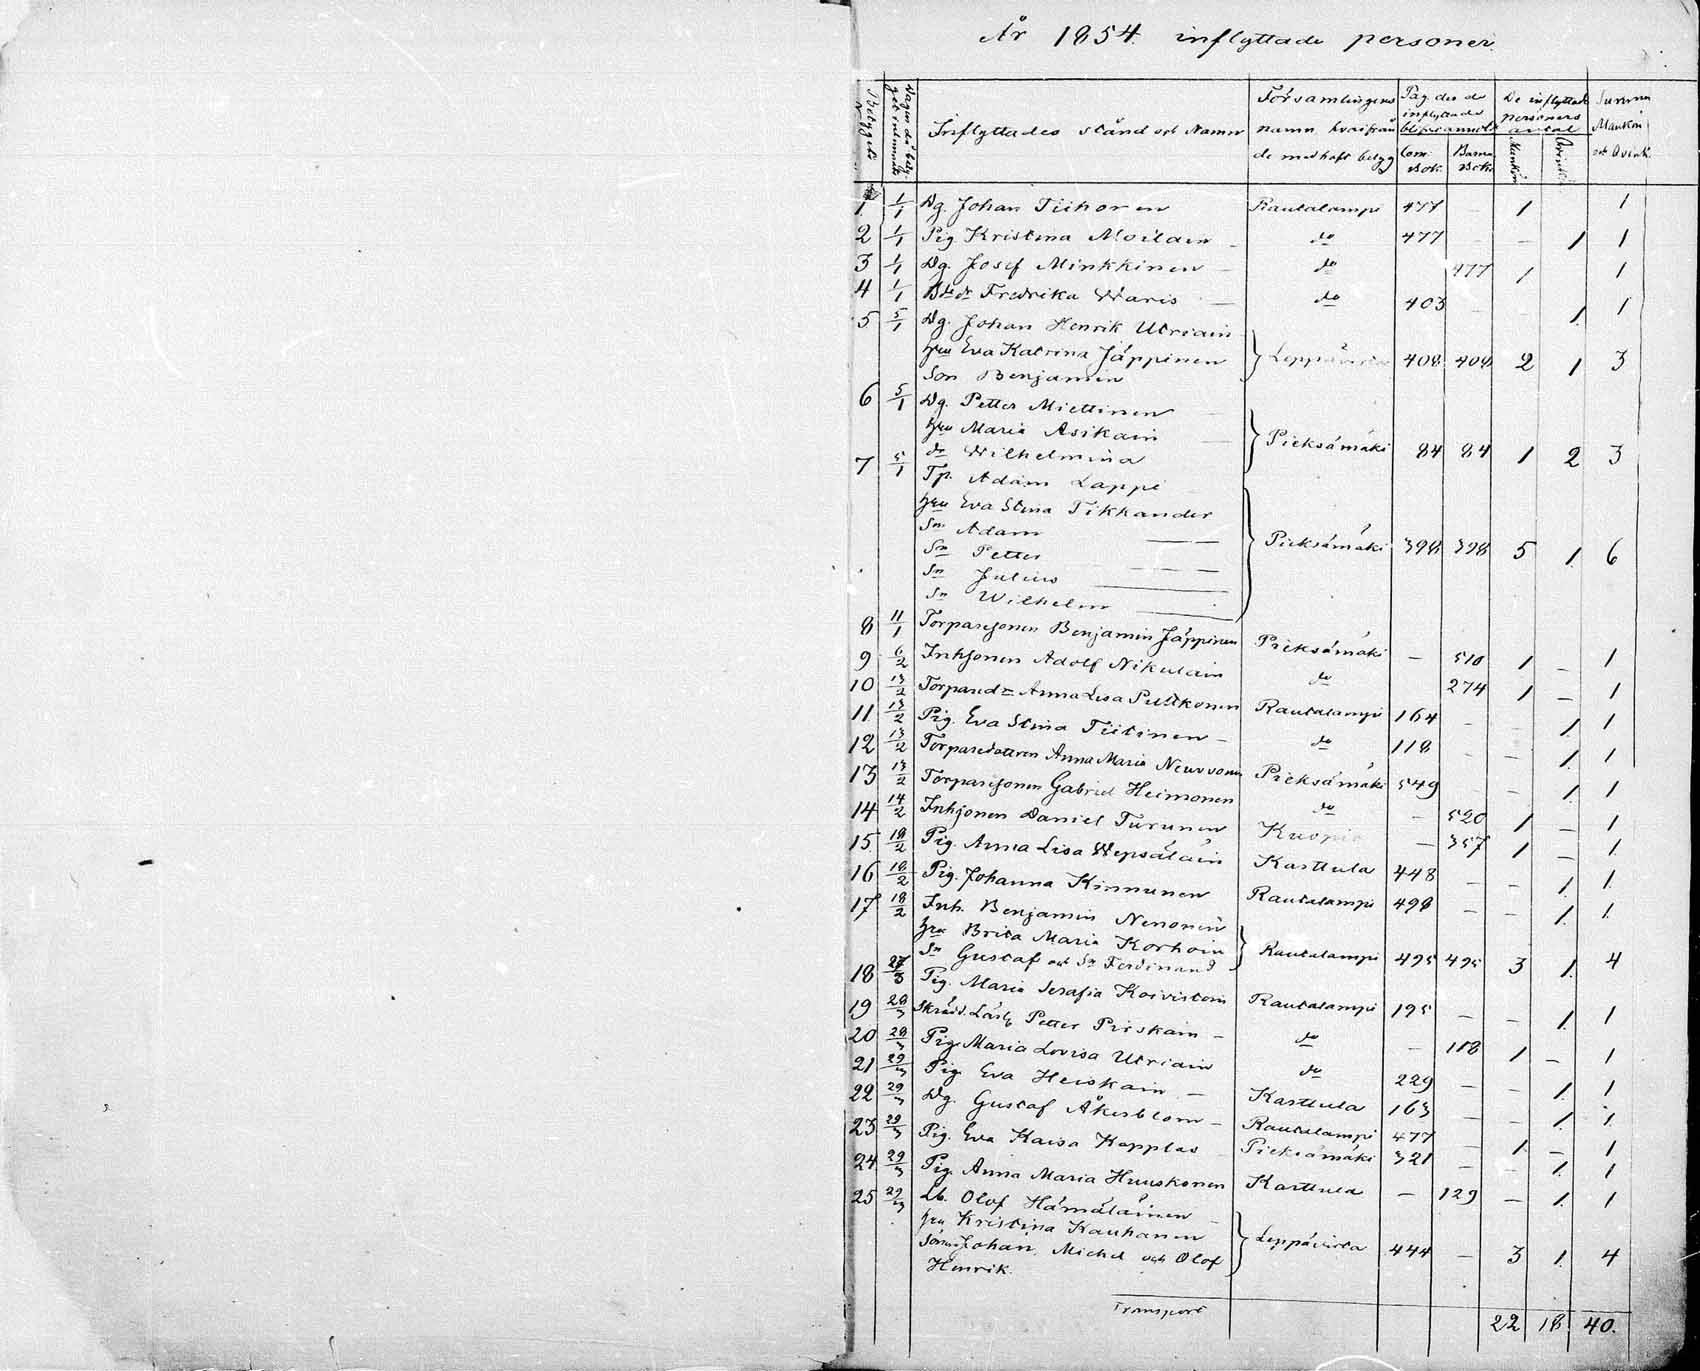 År 1854. inflyttade personer.
Betygets № | Dagen då bety- get inlemnats | Inflyttades stånd och Namn | Församlingens namn hvarifrån de medhaft betyg | Pag. der de inflyttade blifvit annot. Com. Bok. Barna Bok. | De inflyttade personers antal Mankön Qvinkön | Summa Mankön och Qvink.
1 1/1 Dg. Johan Tiihonen Rautalampi 477 – 1 1
2 1/1 Pig Kristina Moilain – do 477 – – 1 1
3 1/1 Dg. Josef Minkkinen – do 477 1 1
4 1/1 Fredrika Waris – do 403 – – 1. 1
5 5/1 Dg. Johan Henrik Utriain
hru Eva Katrina Jäppinen Leppävirta 408 408 2 1 3
Son Benjamin
6 5/1 Dg. Petter Miettinen
hru Maria Asikain Pieksämäki 84 84 1 2 3
dr Wilhelmina
7 5/1 Tp. Adam Lappi
hru Eva Stina Tikkander
Sn Adam Pieksämäki 398 398 5 1. 6
Sn Petter
Sn Julius
Sn Wilhelm
8 11/1 Torparesonen Benjamin Jäppinen Pieksämäki – 510 1 – 1
9 6/2 Inhsonen Adolf Nikulain do 274 1 – 1
10 13/2 Torpared:r Anna Lisa Puttkonen Rautalampi 164 – – 1 1
11 13/2 Pig. Eva Stina Tiitinen – do 118 – – 1. 1
12 13/2 Torparedottren Anna Maria Neuvonen Pieksämäki 549 – – 1 1
13 13/2 Torparesonen Gabriel Heimonen do – 520 1 – 1
14 14/2 Inhsonen Daniel Turunen Kuopio – 357 1 – 1
15 18/2 Pig. Anna Lisa Wepsäläin Karttula 448 – – 1 1.
16 18/2 Pig. Johanna Kinnunen Rautalampi 498 – – 1. 1.
17 18/2 Inh. Benjamin Nenonen
hru Brita Maria Korhoin Rautalampi 495 495 3 1. 4
Sn Gustaf och Sn Ferdinand
18 27/3 Pig. Maria Serafia Koivistoin Rautalampi 195 – – 1. 1
19 28/3 Skrädd. Lärl. Petter Pirskain – do – 118 1 – 1
20 28/3 Pig. Maria Lovisa Utriain do 229 – – 1. 1
21 29/3 Pig. Eva Heiskain – Karttula 163 – – 1. 1.
22 29/3 Dg. Gustaf Åkerblom – Rautalampi 477 – 1. – 1
23 29/3 Pig. Eva Kaisa Kopplas Pieksämäki 321 – – 1. 1
24 29/3 Pig. Anna Maria Huuskonen Karttula – 129 – 1. 1
25 29/3 Olof Hämäläinen –
hru Kristina Kauhanen
Söner Johan, Michel och Olof Leppävirta 444 – 3 1. 4
Henrik.
Transport 22 18 40.